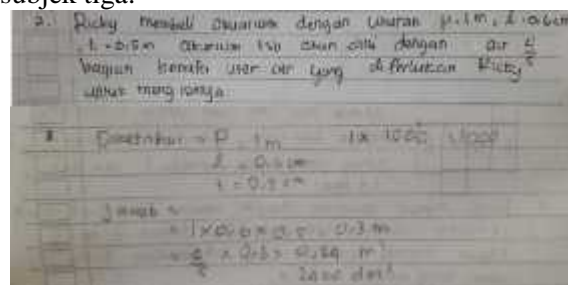 subjek tiga.
2. Ricky membeli akuarium dengan ukuran p. 1m, l. 0.6cm
, t = 0.5m akuarium itu akan diisi dengan air 4/5
bagian berapa liter air yang diperlukan Ricky
untuk mengisinya
Diketahui = P 1m 1 x 1000
l = 0,6 cm
t = 0,5 cm
Jawab =
= 1 x 0,6 x 0,5 0,3 m
= 4/5 x 0,3 = 0,24 m³
dm³